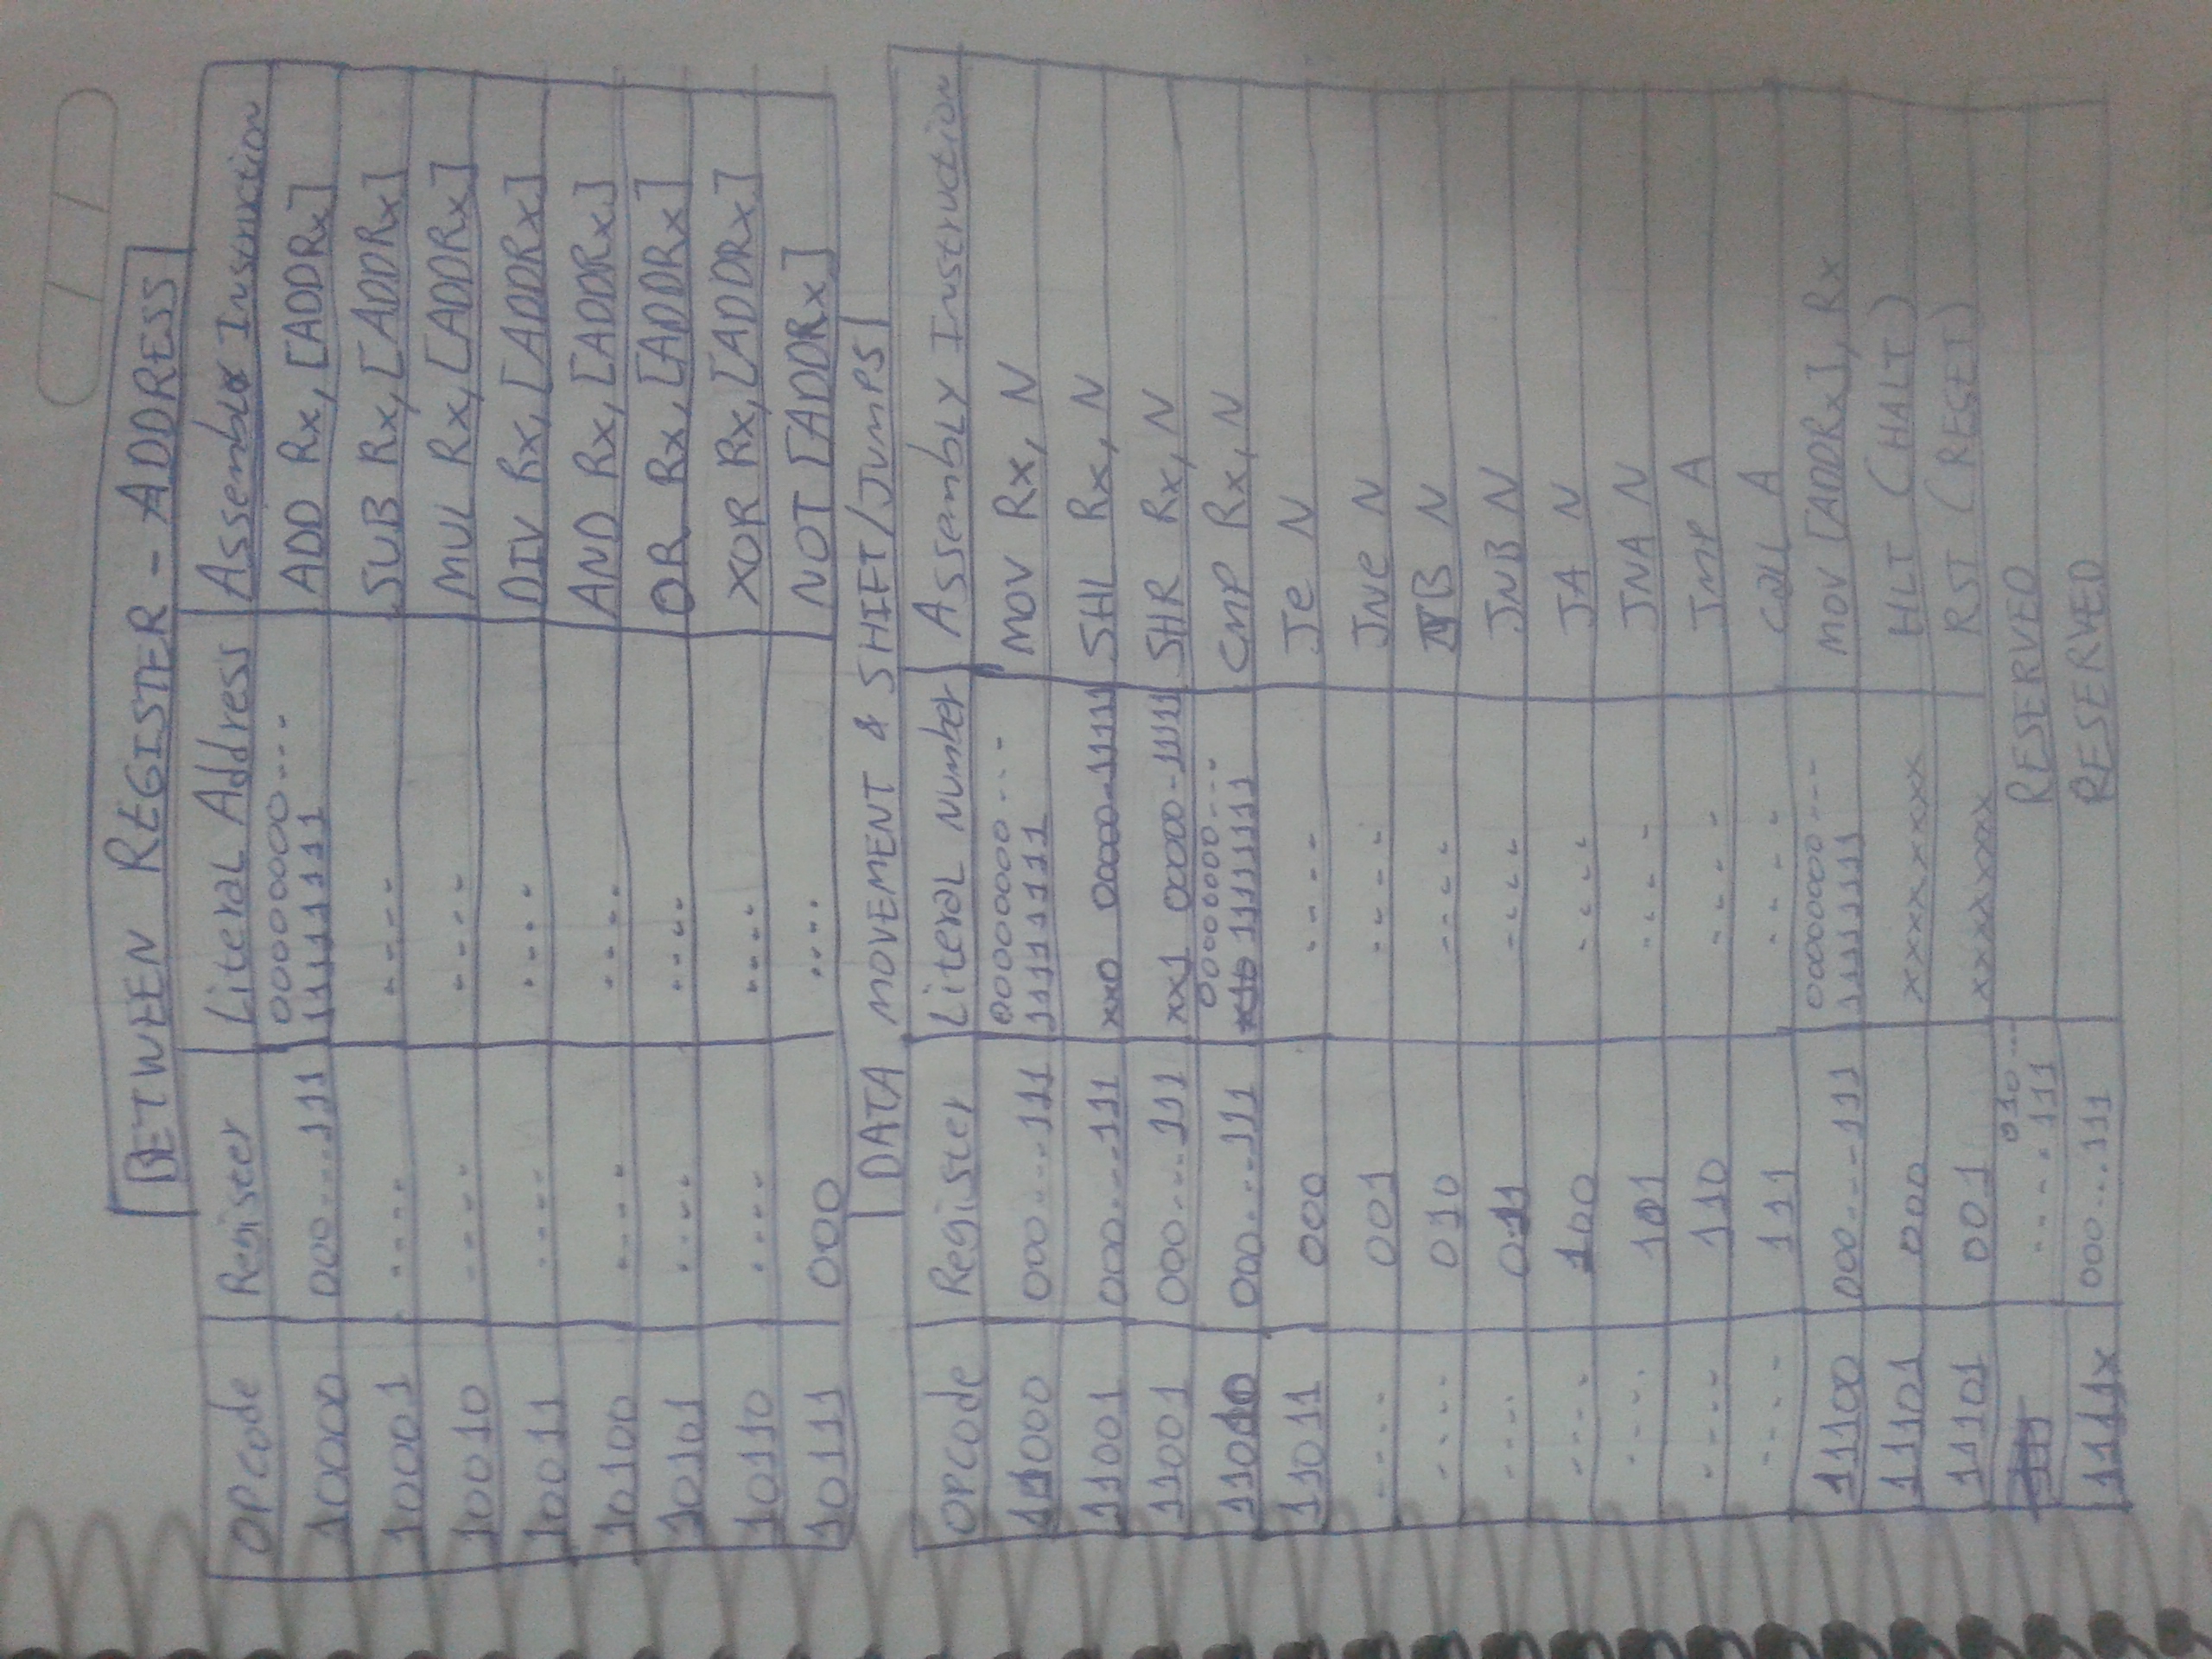 BETWEEN REGISTER - ADDRESS
OPcode Register Literal Address Assembly Instruction
10000 000...111 00000000---
11111111 ADD Rx, [ADDRx]
10001 ---- ---- SUB Rx, [ADDRx]
10010 ---- ---- MUL Rx, [ADDRx]
10011 ---- ---- DIV Rx, [ADDRx]
10100 ---- ---- AND Rx, [ADDRx]
10101 ---- ---- OR Rx, [ADDRx]
10110 ---- ---- XOR Rx, [ADDRx]
10111 000 ---- NOT [ADDRx]
DATA MOVEMENT & SHIFT/JUMPS
OPcode Register Literal Number Assembly Instruction
11000 000...111 00000000---
11111111 MOV Rx, N
11001 000...111 xx0 00000-11111 SHL Rx, N
11001 000...111 xx1 00000-11111 SHR Rx, N
11010 000...111 00000000---
11111111 CMP Rx, N
11011 000 ---- Je N
---- 001 ---- JNe N
---- 010 ---- JB N
---- 011 ---- JNB N
---- 100 ---- JA N
---- 101 ---- JNA N
---- 110 ---- JMP A
---- 111 ---- CALL A
11100 000...111 00000000---
11111111 MOV [ADDRx], Rx
11101 000 xxxxxxxx HLT (HALT)
11101 001 xxxxxxxx RST (RESET)
010---
-----111 RESERVED
1111x 000...111 RESERVED